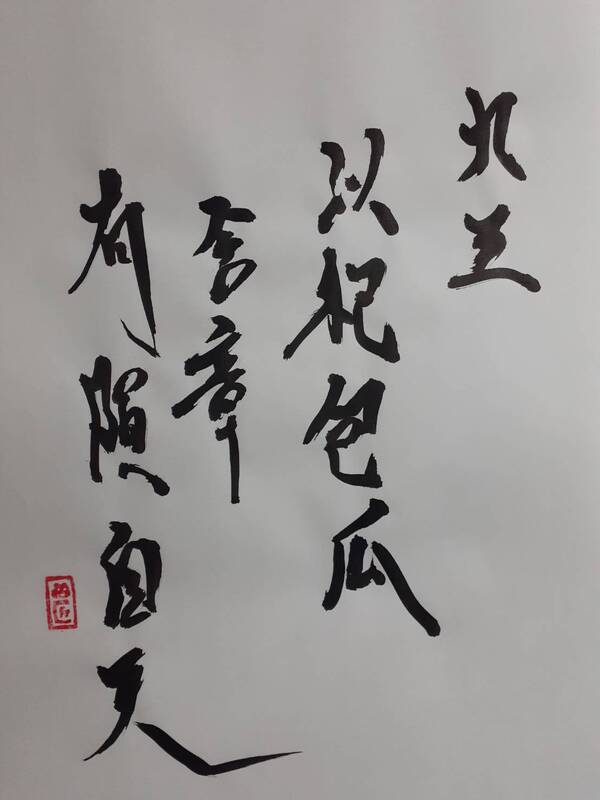 九五
以杞包瓜
含章
有隕自天